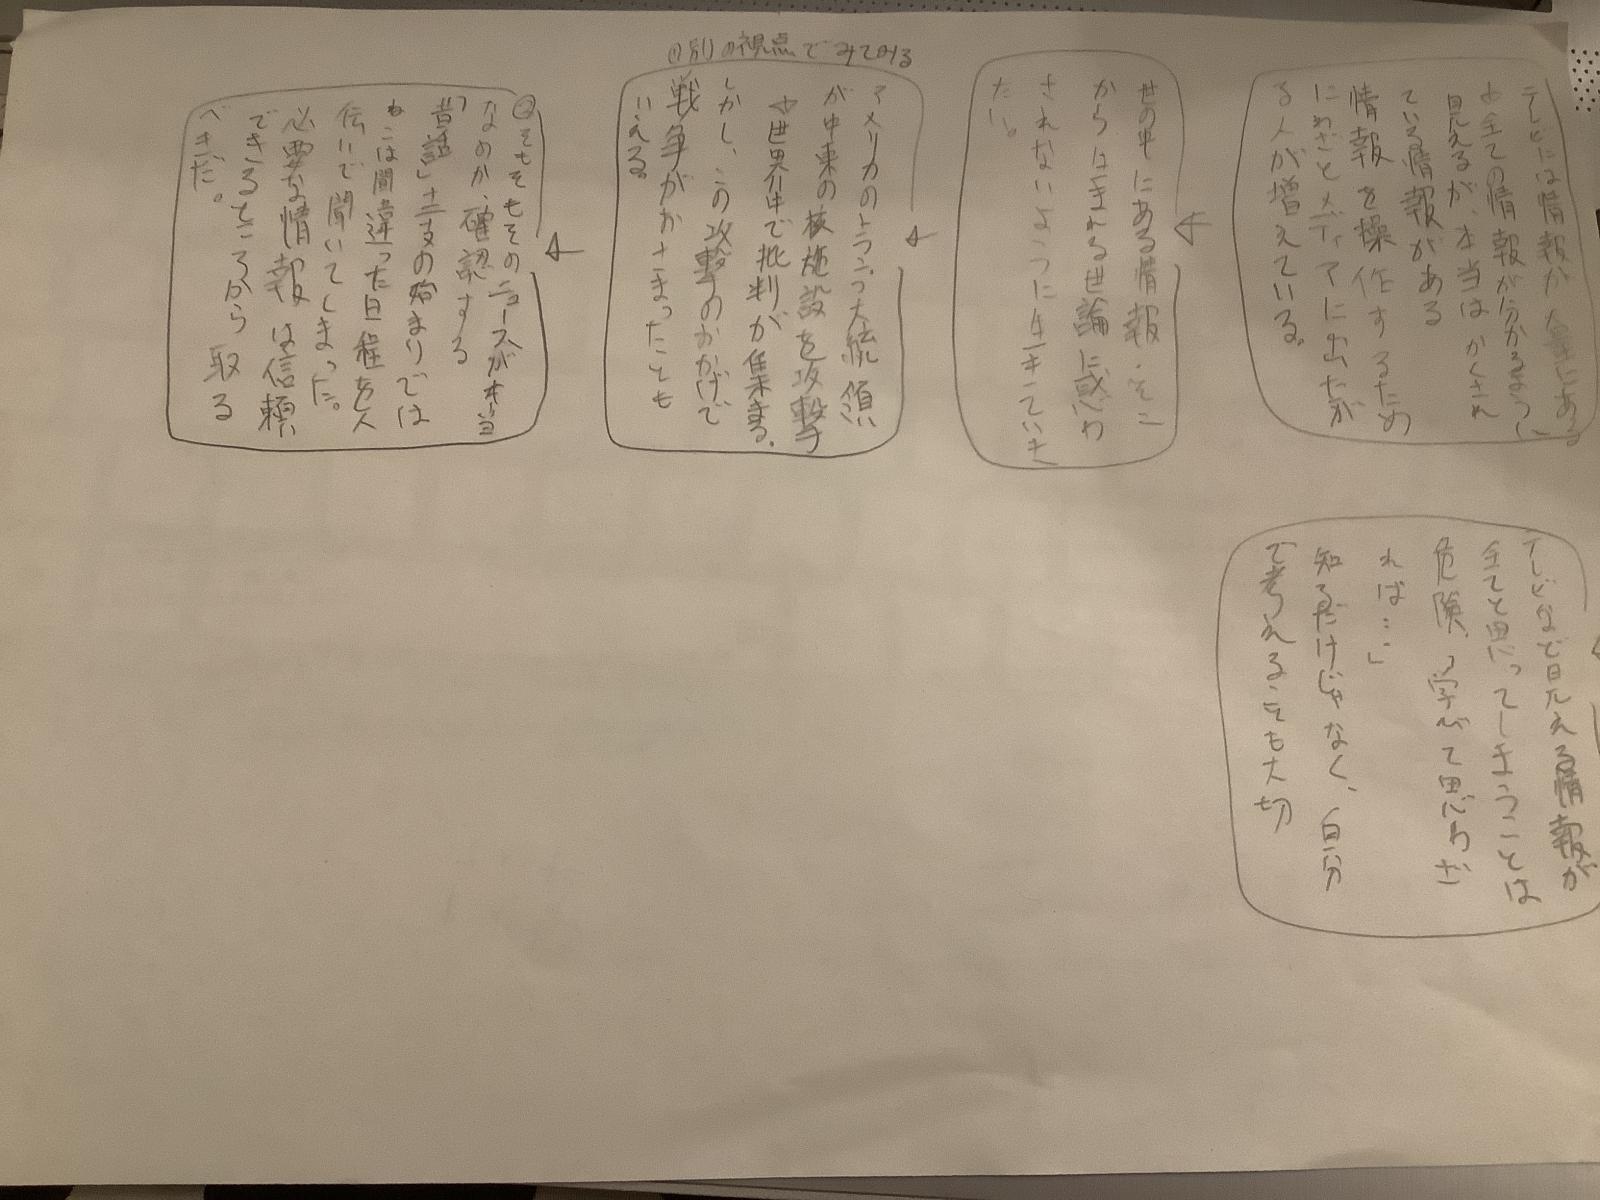 テレビには情報が大量にある
↓全ての情報が分かるように
見えるが、本当はかくされ
ている情報がある
情報を操作するため
にわざとメディアに出たが
る人が増えている。
テレビなどで見える情報が
全てと思ってしまうことは
危険、「学べて思わざ
れば…」
知るだけじゃなく、自分
で考えることも大切
世の中にある情報・そこ
から生まれる世論に惑わ
されないように生きていき
たい。
①別の視点でみてみる
アメリカのトランプ大統領
が中東の核施設を攻撃
→世界中で批判が集まる。
しかし、この攻撃のおかげで
戦争がおさまったとも
いえる。
②そもそもそのニュースが本当
なのか、確認する
昔話」十二支の始まりでは
ねこは間違った日程を人
伝いで聞いてしまった。
必要な情報は信頼
できるところから取る
べきだ。